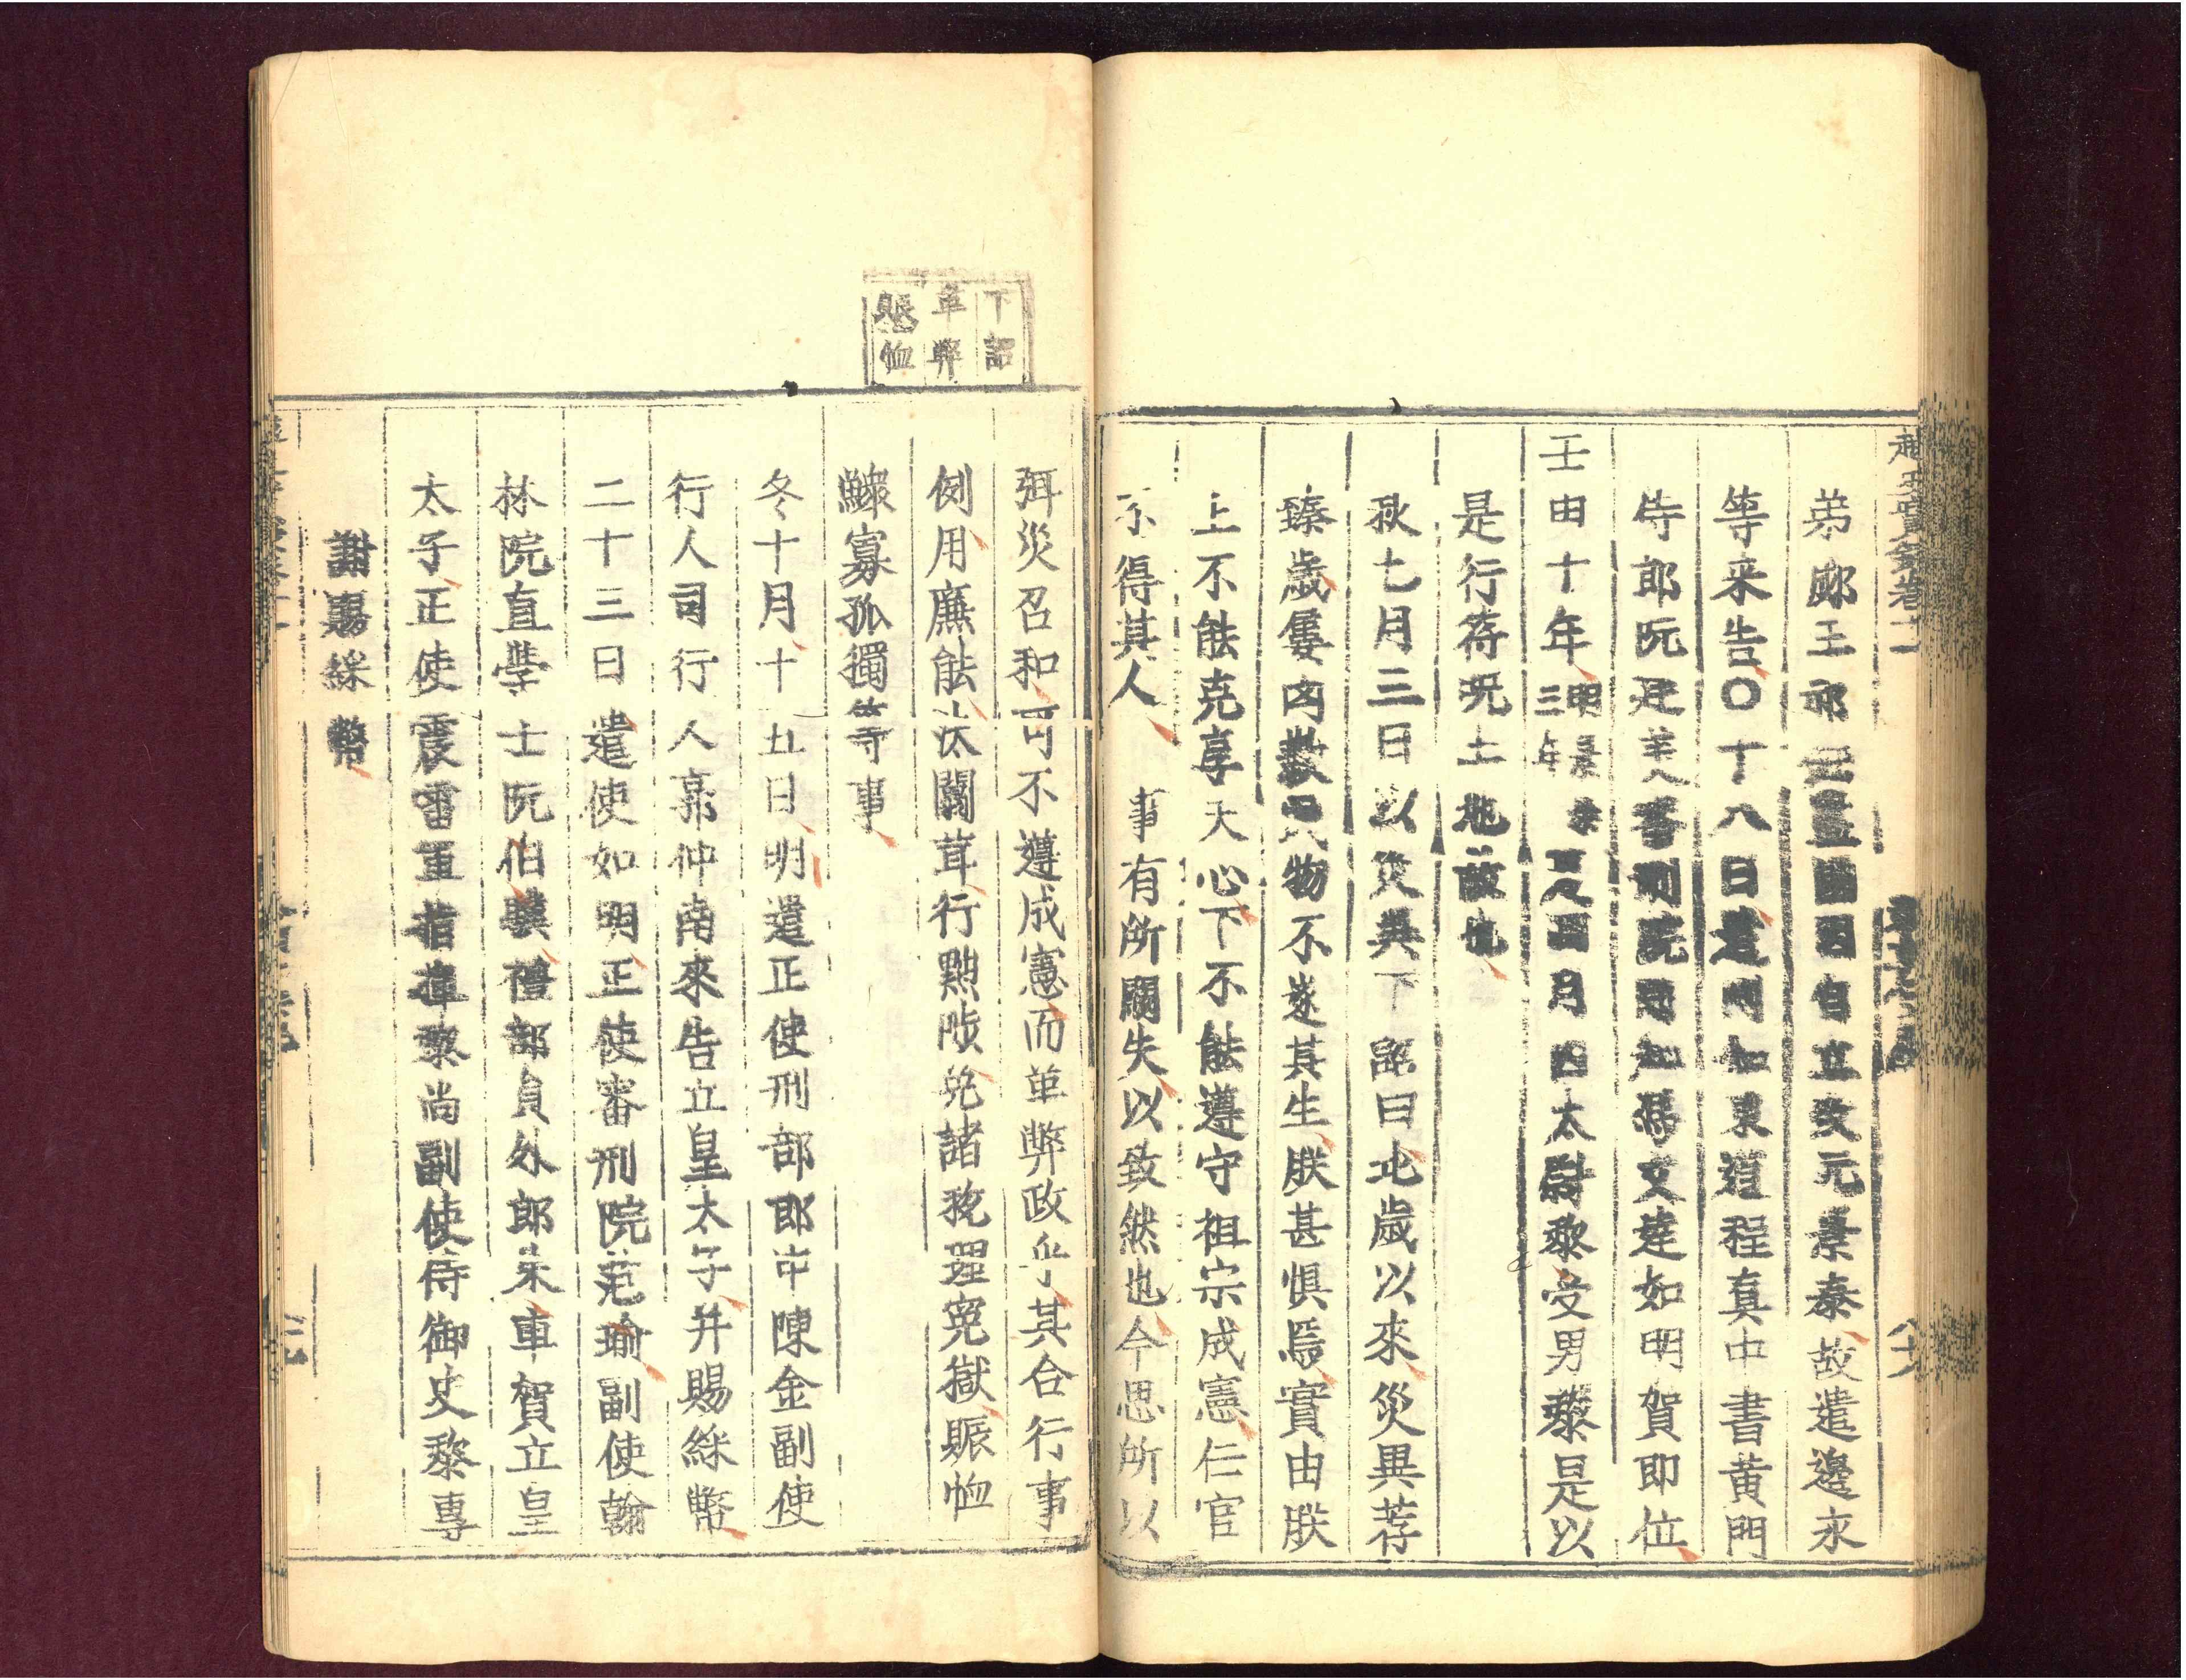 弟郕王祁監國因自立改元景泰故遣邊永
等来告〇十八日遣同知東道程真中書黃門
侍郎阮廷美八番判阮如馮文達如明賀即位
壬申十年明景泰三年四月太尉黎受男黎是以
是行符呪土地故也
秋七月三日以災異下詔曰比歲以來災異荐
臻歲屢凶歉民物不遂其生朕甚惧焉實由朕
上不能克享天心下不能遵守祖宗成憲仁官
不得其人事有所闕失以致然也今思所以
下詔
革弊
賑恤
弭災召和可不遵成憲而革弊政乎其合行事
例用廉能汰闒茸行黜陟免諸稅理寃獄賑恤
鰥寡孤獨等事
冬十月十五日明遣正使刑部郎中陳金副使
行人司行人郭仲南來告立皇太子并賜綵幣
二十三日遣使如明正使審刑院范瑜副使翰
林院直學士阮伯驥禮部員外郎朱車賀立皇
太子正使震雷軍指揮黎尚副使侍御史黎專
謝賜綵幣